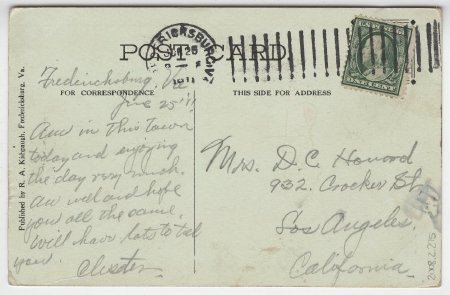 POST CARD
FREDERICKSBURG, VA.
1911
1 CENT 1
FOR CORRESPONDENCE
THIS SIDE FOR ADDRESS
Published by R. A. Kishpaugh, Fredericksburg, Va.
Fredericksburg, Va
June 25 '11
Am in this town
today and enjoying
the day very much.
Am well and hope
you all the same.
Will have lots to tell
you.
Chester
Mrs. D. C. Howard
932. Crocker St.
Los Angeles.
California.